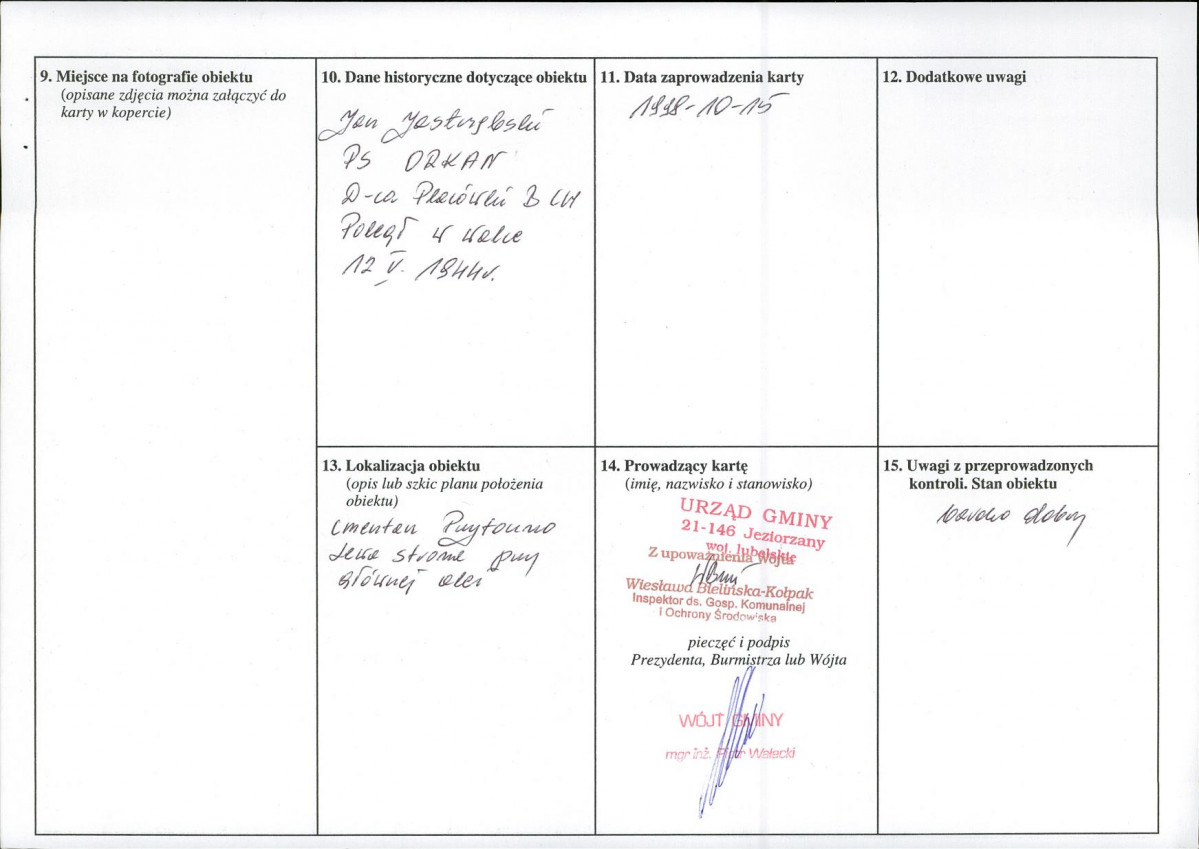 9. Miejsce na fotografie obiektu
(opisane zdjęcia można załączyć do
karty w kopercie)
10. Dane historyczne dotyczące obiektu
Jan Jastrzębski
PS ORKAN
D-ca Placówki B CH
Poległ w walce
12 V. 1944r.
11. Data zaprowadzenia karty
1998-10-15
12. Dodatkowe uwagi
13. Lokalizacja obiektu
(opis lub szkic planu położenia
obiektu)
cmentarz Przytoczno
lewa strona przy
głównej alei
14. Prowadzący kartę
(imię, nazwisko i stanowisko)
URZĄD GMINY
21-146 Jeziorzany
woj. lubelskie
Z upoważnienia Wójta
Wiesława Bielińska-Kołpak
Inspektor ds. Gosp. Komunalnej
i Ochrony Środowiska
pieczęć i podpis
Prezydenta, Burmistrza lub Wójta
WÓJT GMINY
mgr inż. Piotr Wałecki
15. Uwagi z przeprowadzonych
kontroli. Stan obiektu
bardzo dobry